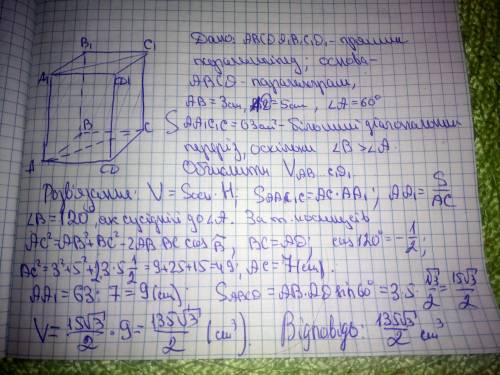 B₁ C₁
A₁ D₁
B C
A D
Дано: ABCDA₁B₁C₁D₁ - прямий
паралелепіпед; основа -
ABCD - паралелограм,
AB = 3см, AD = 5см, ∠A = 60°
S AA₁C₁C = 63см² - більший діагональний
переріз, оскільки ∠B > ∠A.
Обчислити V AB...CD₁
Розв'язання: V = Sосн·H; SAA₁C₁C = AC·AA₁; AA₁ = S/AC
∠B = 120°, як сусідній до ∠A. За т. косинусів
AC² = AB² + BC² - 2AB·BC cos B, BC = AD; cos 120° = -1/2;
AC² = 3² + 5² + 2·3·5·1/2 = 9 + 25 + 15 = 49; AC = 7 (см)
AA₁ = 63 : 7 = 9 (см); SABCD = AB·AD sin 60° = 3·5·√3/2 = 15√3/2
V = 15√3/2 · 9 = 135√3/2 (см³). Відповідь: 135√3/2 см³